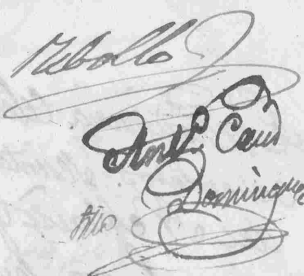 Rebollo
Antº Cano
Domingue